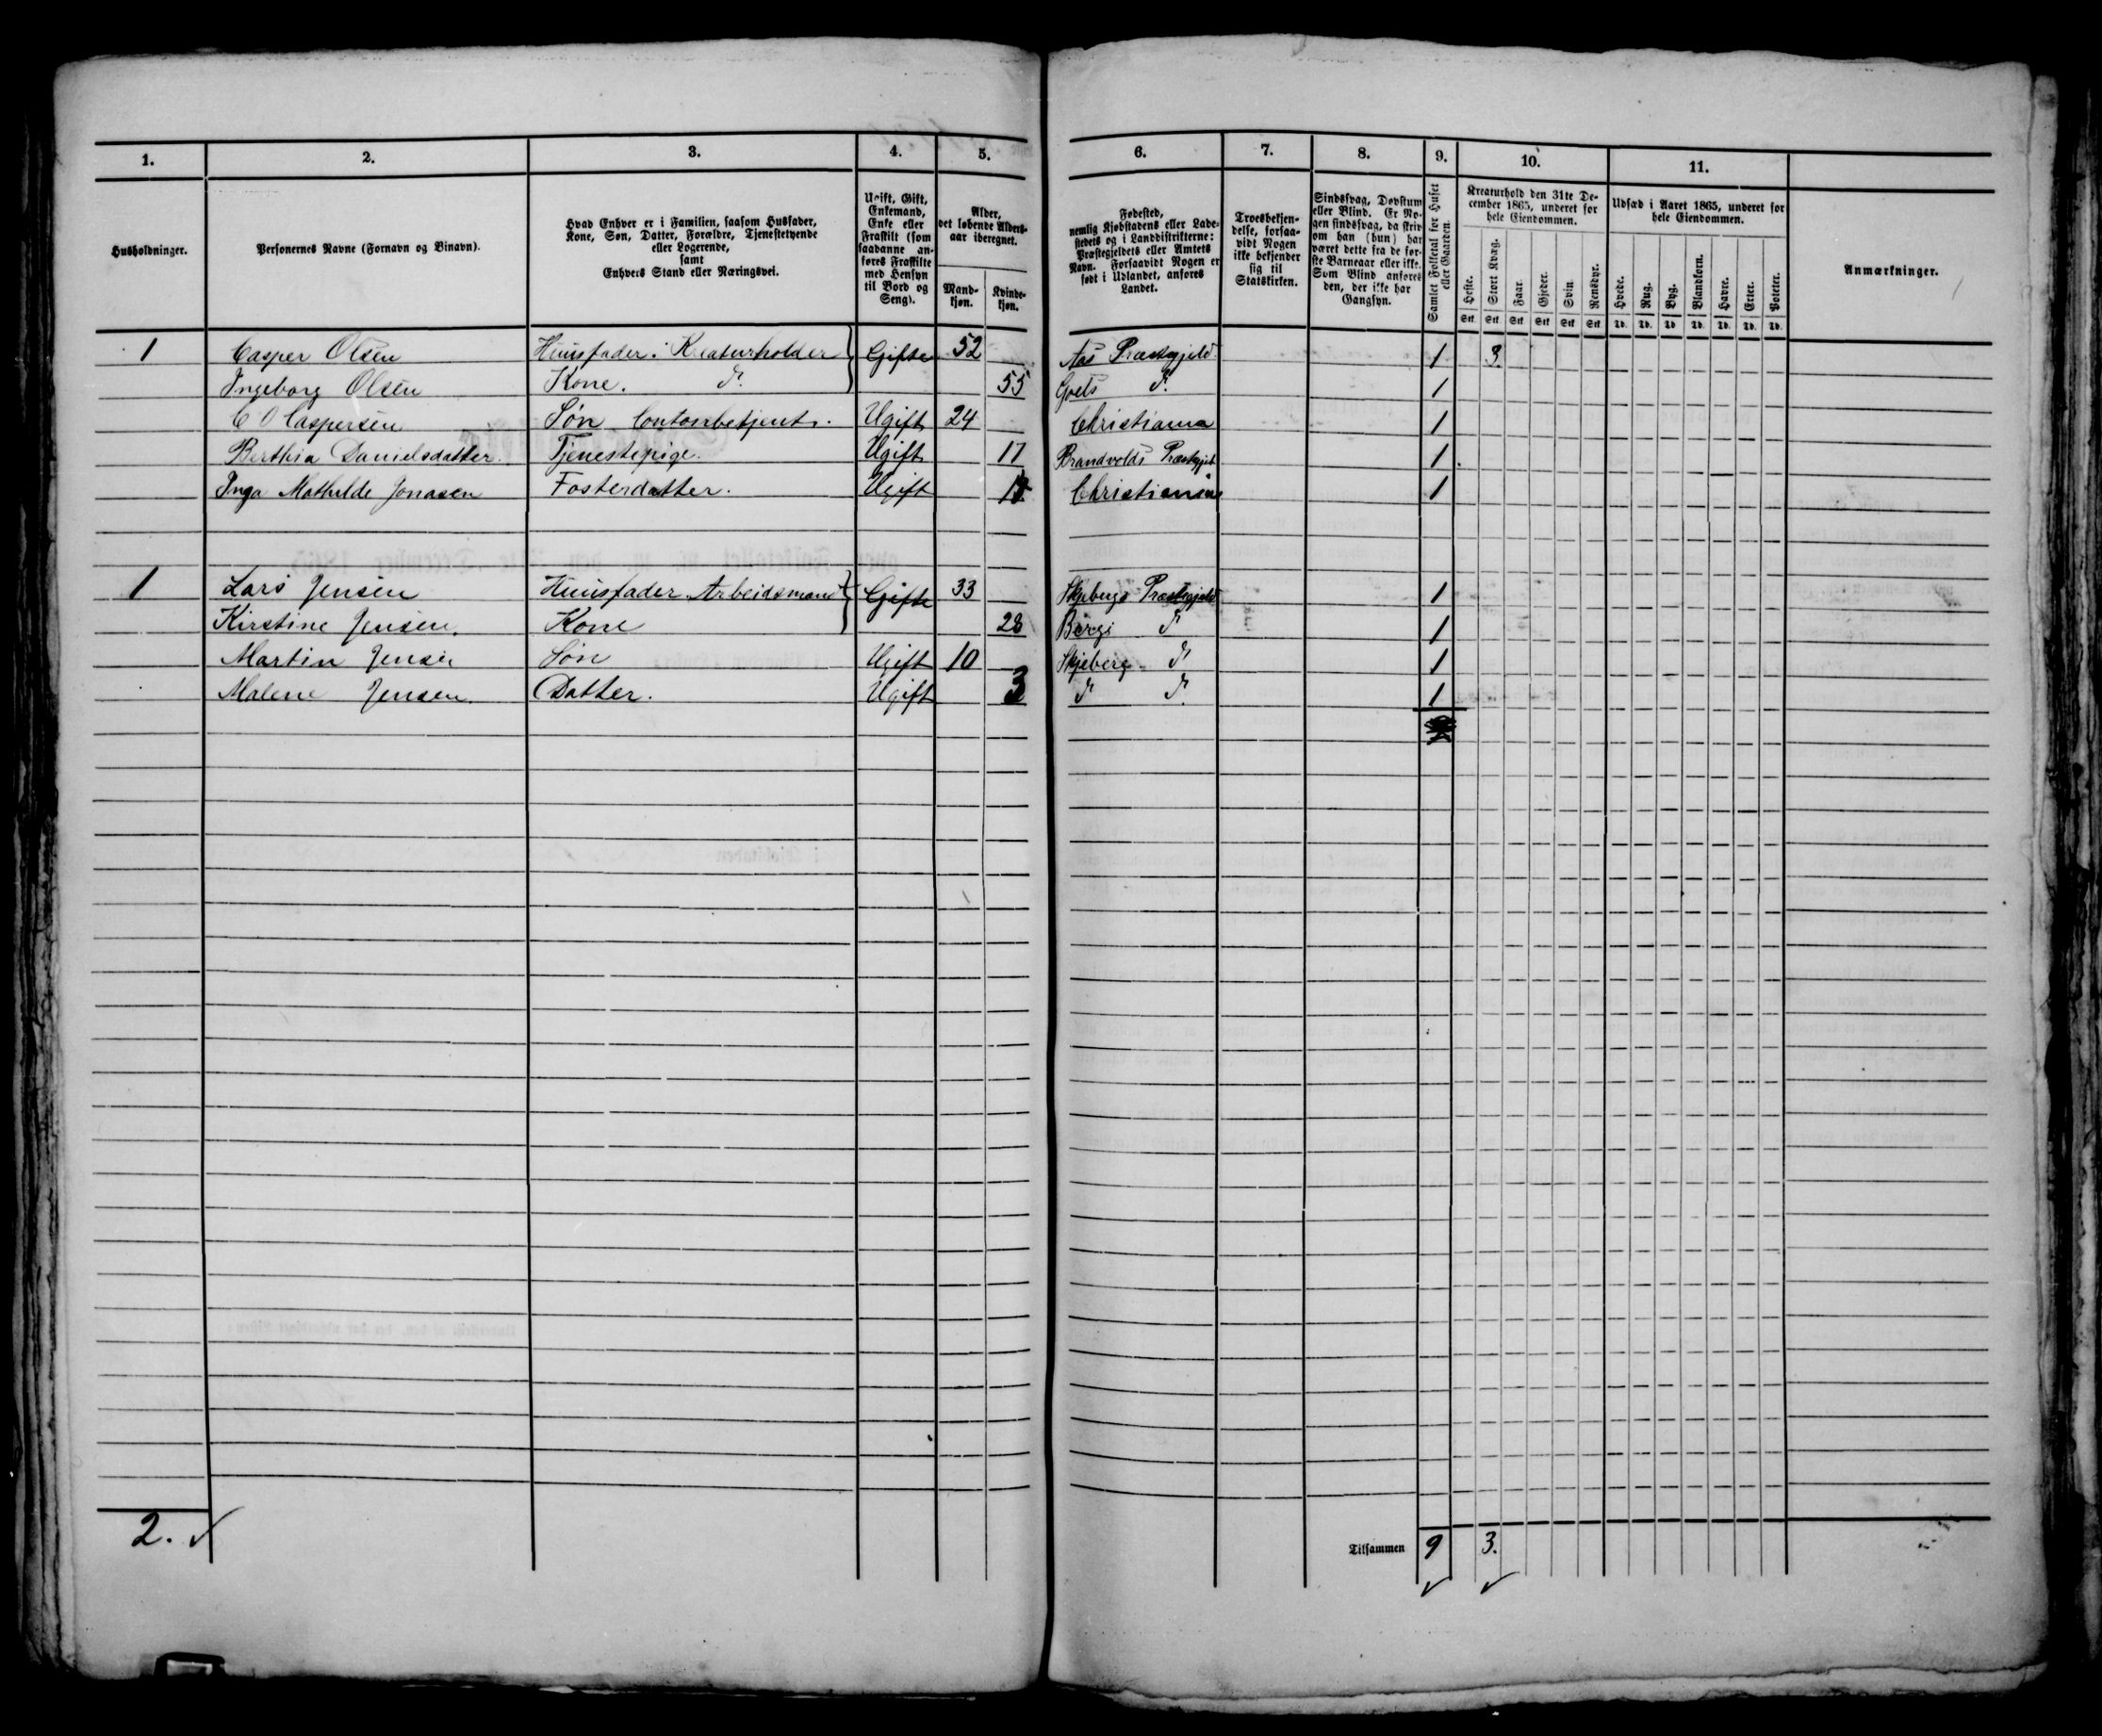 1. 2. 3. 4. 5. 6. 7. 8. 9. 10. 11.
Husholdninger.
Personernes Navne (Fornavn og Binavn).
Hvad Enhver er i Familien, saasom Husfader,
Kone, Søn, Datter, Forældre, Tjenestetyende
eller Logerende,
samt
Enhvers Stand eller Næringsvei.
Ugift, Gift,
Enkemand,
Enke eller
Fraskilt (som
saadanne an-
føres Fraskilte
med Hensyn
til Bord og
Seng).
Alder,
det løbende Alders-
aar iberegnet.
Mand-
kjøn.
Kvinde-
kjøn.
Fødested,
nemlig Kjøbstadens eller Lade-
stedets og i Landdistrikterne:
Præstegjeldets eller Amtets
Navn. Forsaavidt Nogen er
født i Udlandet, anføres
Landet.
Troesbekjen-
delse, forsaa-
vidt Nogen
ikke bekjender
sig til
Statskirken.
Sindssvag, Døvstum
eller Blind. Er No-
gen sindssvag, da skriv
om han (hun) har
været dette fra de før-
ste Barneaar eller ikke.
Som Blind anføres
den, der ikke har
Gangsyn.
Samlet Folketal for Huset
eller Gaarden.
Kreaturhold den 31te De-
cember 1865, underet for
hele Eiendommen.
Heste. Stort Kvæg. Faar. Gjeder. Svin. Rensdyr.
Stk. Stk. Stk. Stk. Stk. Stk.
Udsæd i Aaret 1865, underet for
hele Eiendommen.
Hvede. Rug. Byg. Blandkorn. Havre. Erter. Poteter.
Td. Td. Td. Td. Td. Td. Td.
Anmærkninger.
1 Casper Olsen Huusfader. Kreaturholder Gifte 52 Aas Præstegjeld 1 3.
Ingeborg Olsen Kone. d°. 55 d°. 1
C O Caspersen Søn Contorbetjent. Ugift 24 Christiania 1
Berthia Danielsdatter. Tjenestepige. Ugift 17 Brandvolds Præstegjeld 1
Inga Mathilde Jonasen Fosterdatter. Ugift Christiania 1
1 Lars Jensen Huusfader Arbeidsmand Gifte 33 Skjebergs Præstegjeld 1
Kirstine Jensen. Kone 28 d° 1
Martin Jensen Søn Ugift 10 Skjeberg d° 1
Malene Jensen. Datter. Ugift 3 d° d°. 1
2. Tilsammen 9 3.